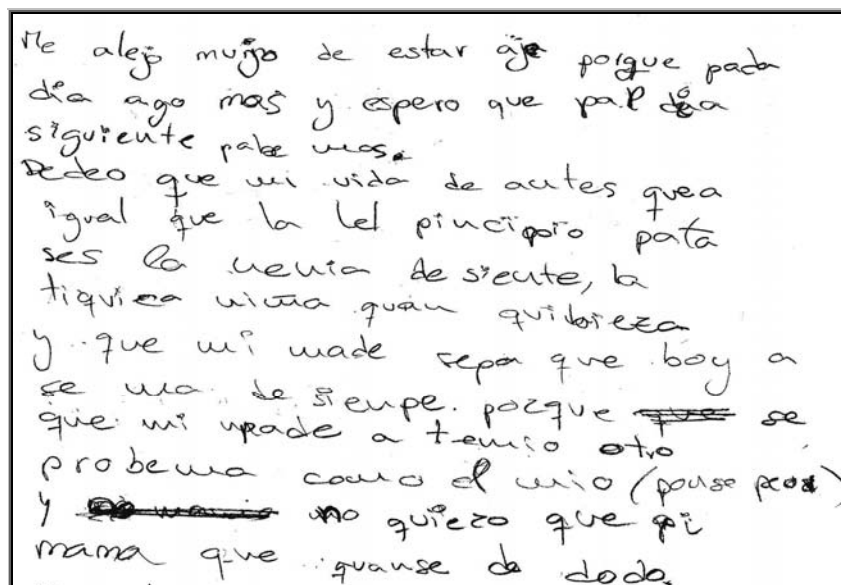 Me alejo mujo de estar aje porque pada
dia ago mas y espero que pal dia
siguiente pabe mas.
Dedeo que mi vida de antes quea
igual que la lel pincipoio pata
ses la nenia de siente, la
tiquiea nima quan quibieza
y que mi made sepa que boy a
se ma de sienpe. pozque que se
que mi made a tenio otro
probema como el mio (ponse peoz)
y no quiezo que pi
mama que quanse de dodo.